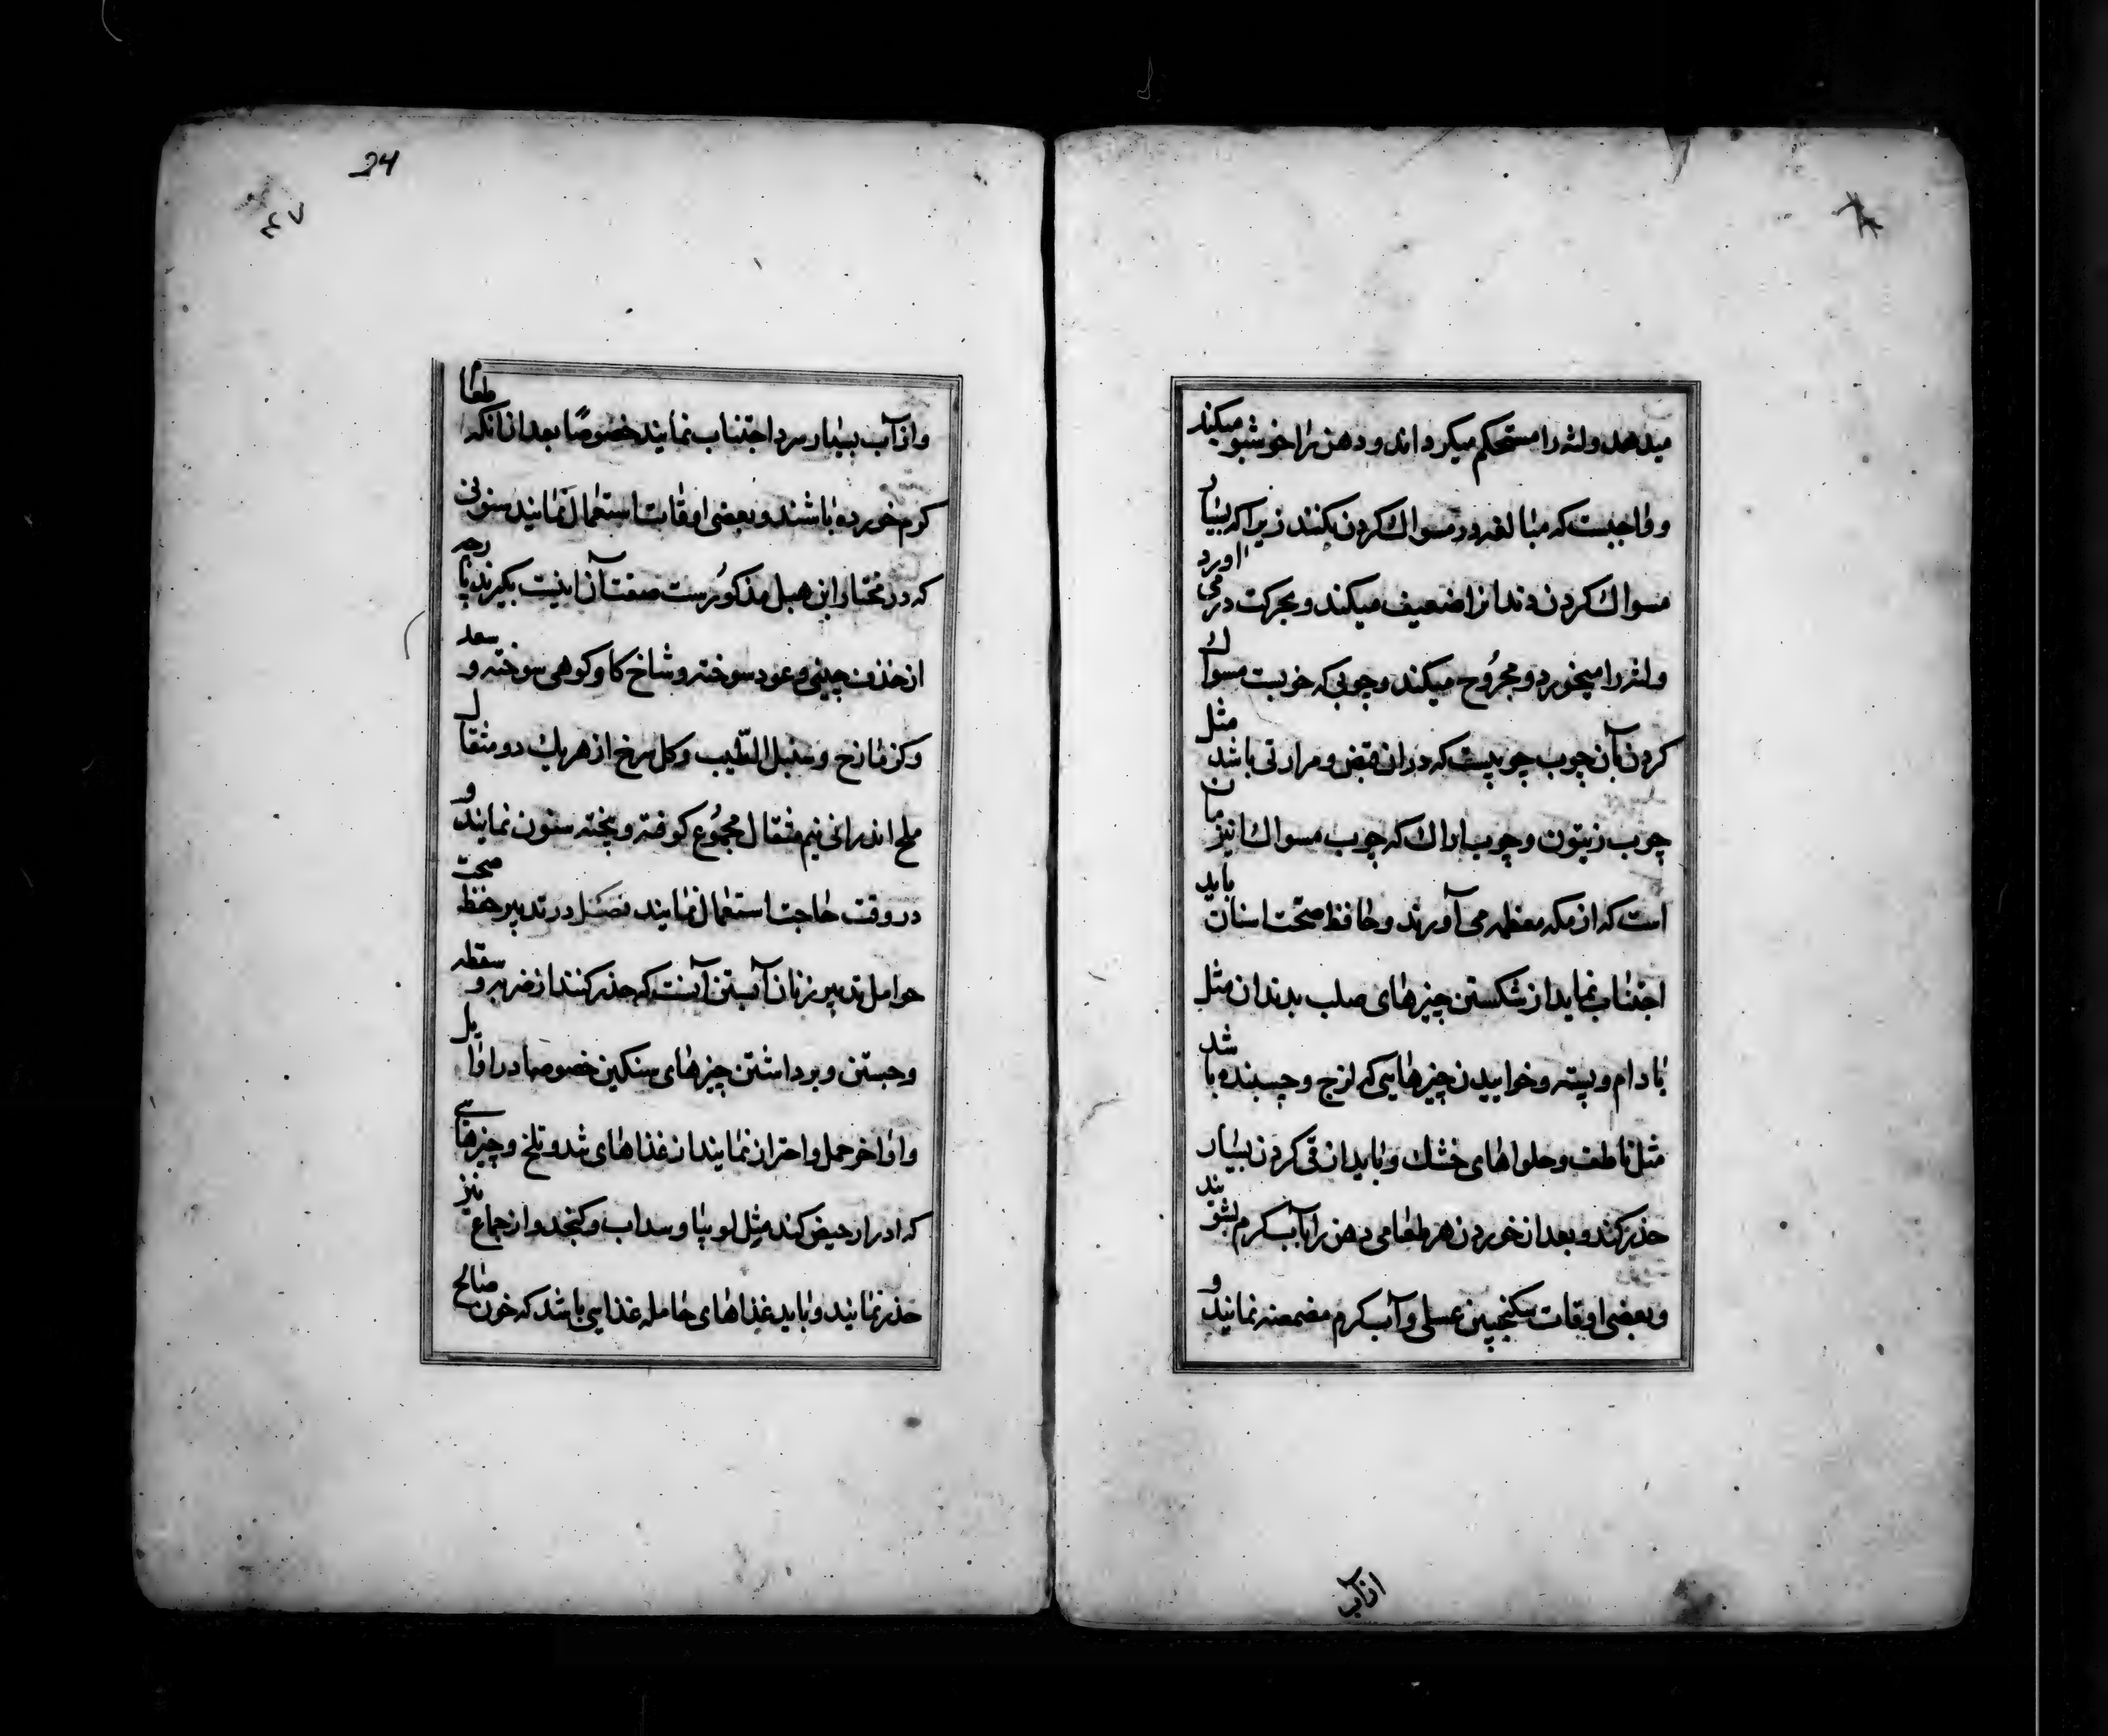 میدهد ولثه را مستحکم میکرداند ودهن را خوشبو میکند
وواجبست که مبالغه در مسواک کردن نکنند زیرا که بسیار
مسواک کردن دندانرا ضعیف میکند وبحرکت در می اورد
ولثه را میخورد ومجروح میکند وچوبی که خوبست مسواک
کردن بآن چوب چوبیست که دران قبض ومرارتی باشد مثل
چوب زیتون وچوب اراک که چوب مسواک نیز مان
است که از مکه معظمه می آورند وحافظ صحّت اسنان باید
اجتناب نماید از شکستن چیزهای صلب بدندان مثل
بادام وپسته وخواییدن چیزهایی که لزج وچسبنده باشد
مثل ناطف وحلواهای خشک وباید از قی کردن بسیار
حذر کند وبعد از خوردن هر طعامی دهن را بآب کرم بشویند
وبعضی اوقات سکنجبین عسلی وآب کرم مضمضه نمایند و
از آب
24
٤٧
واز آب بسیار سرد اجتناب نمایند خصوصًا بعد از انکه طعام
کرم خورده باشند وبعضی اوقات استعمال نمایند سنونی
که در مختار ابن هبل مذکورست صفت آن اینست بکیرند پارچه
از خذف چینی وعود سوخته وشاخ کاو کوهی سوخته و سعد
وکزمازج وسنبل الطّیب وکل سرخ از هر یک دو مثقال
ملح اندرانی نیم مثقال مجموُع کوفته وبیخته سنون نمایند و
در وقت حاجت استعمال نمایند فصل در تدبیر حفظ صحت
حوامل تدبیر زنان آبستن آنست که حذر کنند از ضربه و سقطه
وجستن وبرداشتن چیزهای سنکین خصوصا در اوایل
واواخر حمل واحتراز نمایند از غذاهای تند وتلخ وچیزهایی
که ادرار حیض کند مثل لوبیا وسداب وکنجد واز جماع نیز
حذر نمایند وباید غذاهای حامله غذایی باشد که خون صالح